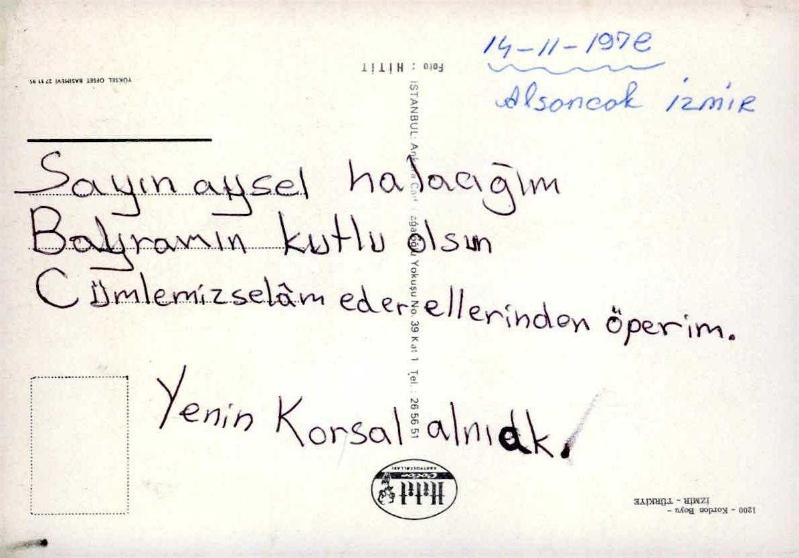 14-11-1978
Alsancak İZMİR
Foto : HİTİT
YÜKSEL OFSET BASIMEVİ 27 51 95
Sayın aysel halacığım
Bayramın kutlu olsun
Cümlemiz selâm eder ellerinden öperim.
Yenin Korsal alnıak.
İSTANBUL: Ankara Cad. Cağaloğlu Yokuşu No. 39 Kat 1 Tel. : 26 56 51
Hitit
Color
KARTPOSTALLARI
1200 - Kordon Boyu -
İZMİR - TÜRKİYE